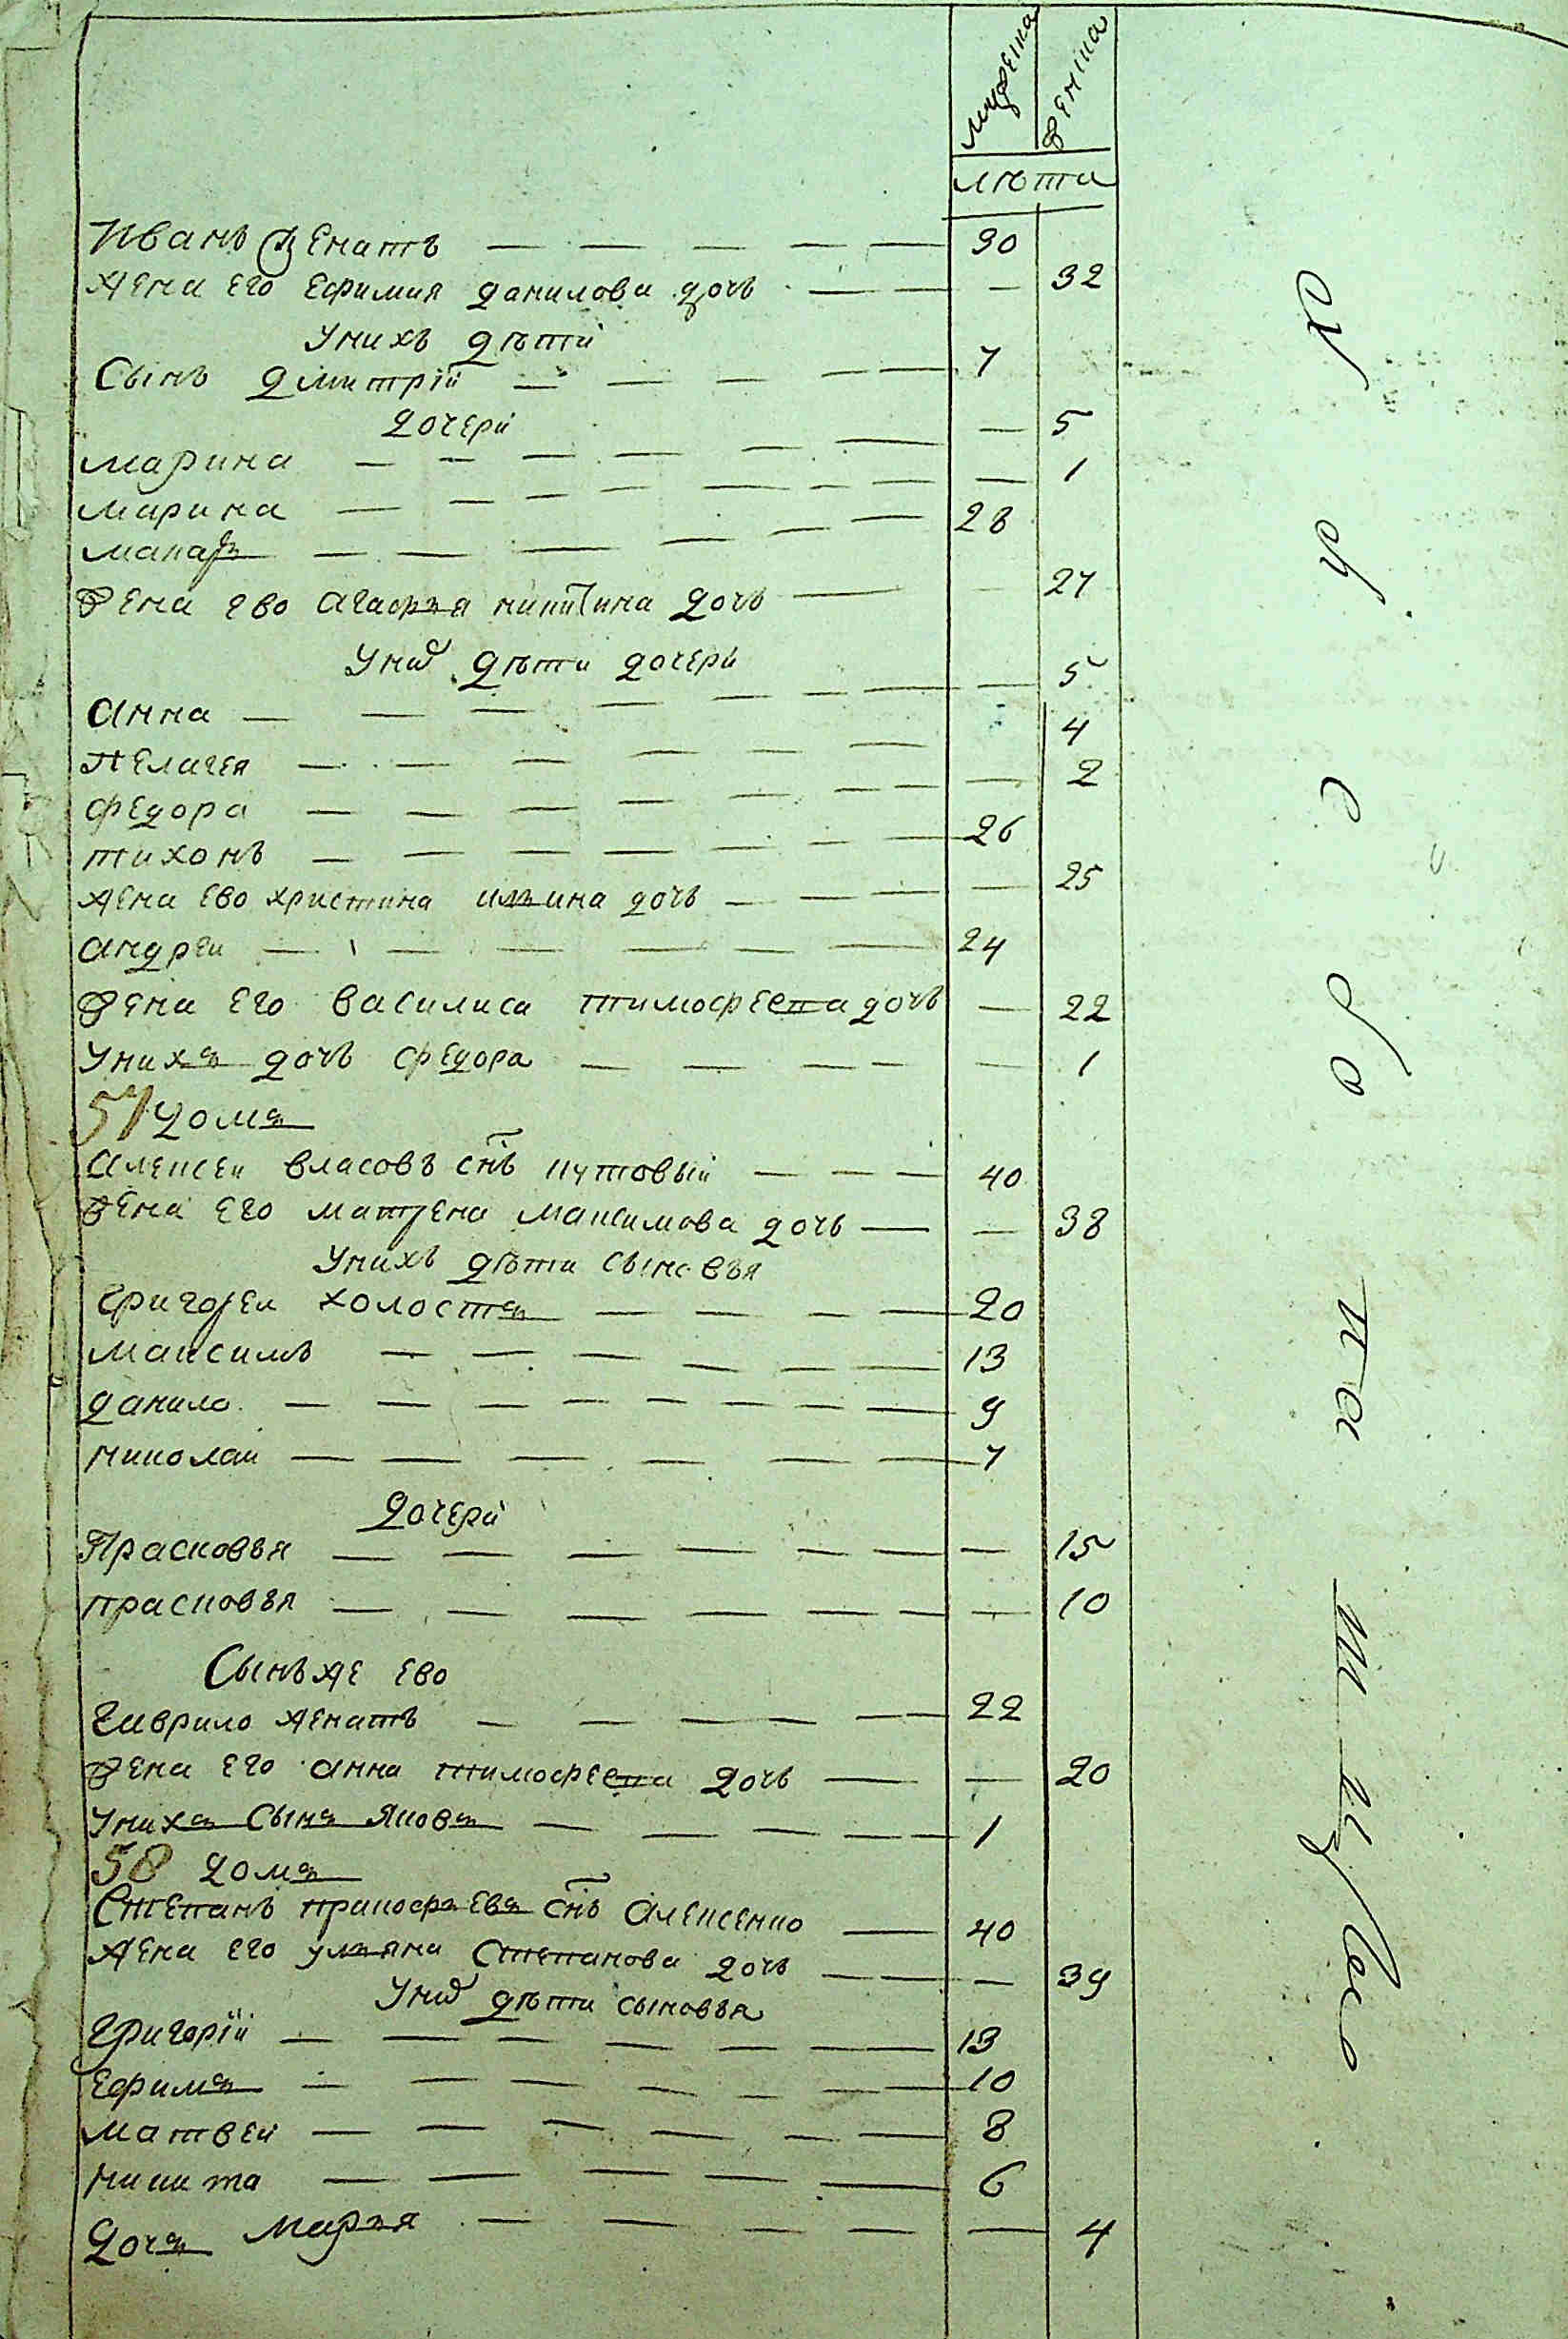 мужеска женска
лѣта
Иванъ женатъ — — — — — 30
жена его Ефимия данилова дочь — — — 32
У нихъ дѣти
Сынъ дмитрій — — — — — 7
дочери
марина — — — — — — — 5
марина — — — — — — — — 1
макаръ — — — — — — 28
жена ево агафья никитина дочь — — 27
У них дѣти дочери
анна — — — — — — — — 5
пелагея — — — — — — 4
федора — — — — — — — — 2
тихонъ — — — — — — — 26
жена ево христина ильина дочь — — — — 25
андреи — — — — — — 24
жена его василиса тимофеева дочь — 22
У нихъ дочь федора — — — — — 1
57 домъ
алексеи власовъ снъ кутовый — — — 40
жена его матрена максимова дочь — — 38
У нихъ дѣти сыновья
григореи холостъ — — — — 20
максимъ — — — — — — 13
данило — — — — — — — — 9
николаи — — — — — — 7
дочери
Прасковья — — — — — — — 15
прасковья — — — — — — — 10
Сынъ же ево
гаврило женатъ — — — — — — 22
жена его анна тимофеева дочь — — — 20
У нихъ сынъ яковъ — — — — — 1
58 домъ
Степанъ прокофьевъ снъ алексенко — 40
жена его ульяна степанова дочь — — — 39
У них дѣти сыновья
григорій — — — — — — — 13
ефимъ — — — — — — — 10
матвеи — — — — — — 8
никита — — — — — 6
дочь марья — — — — — — 4